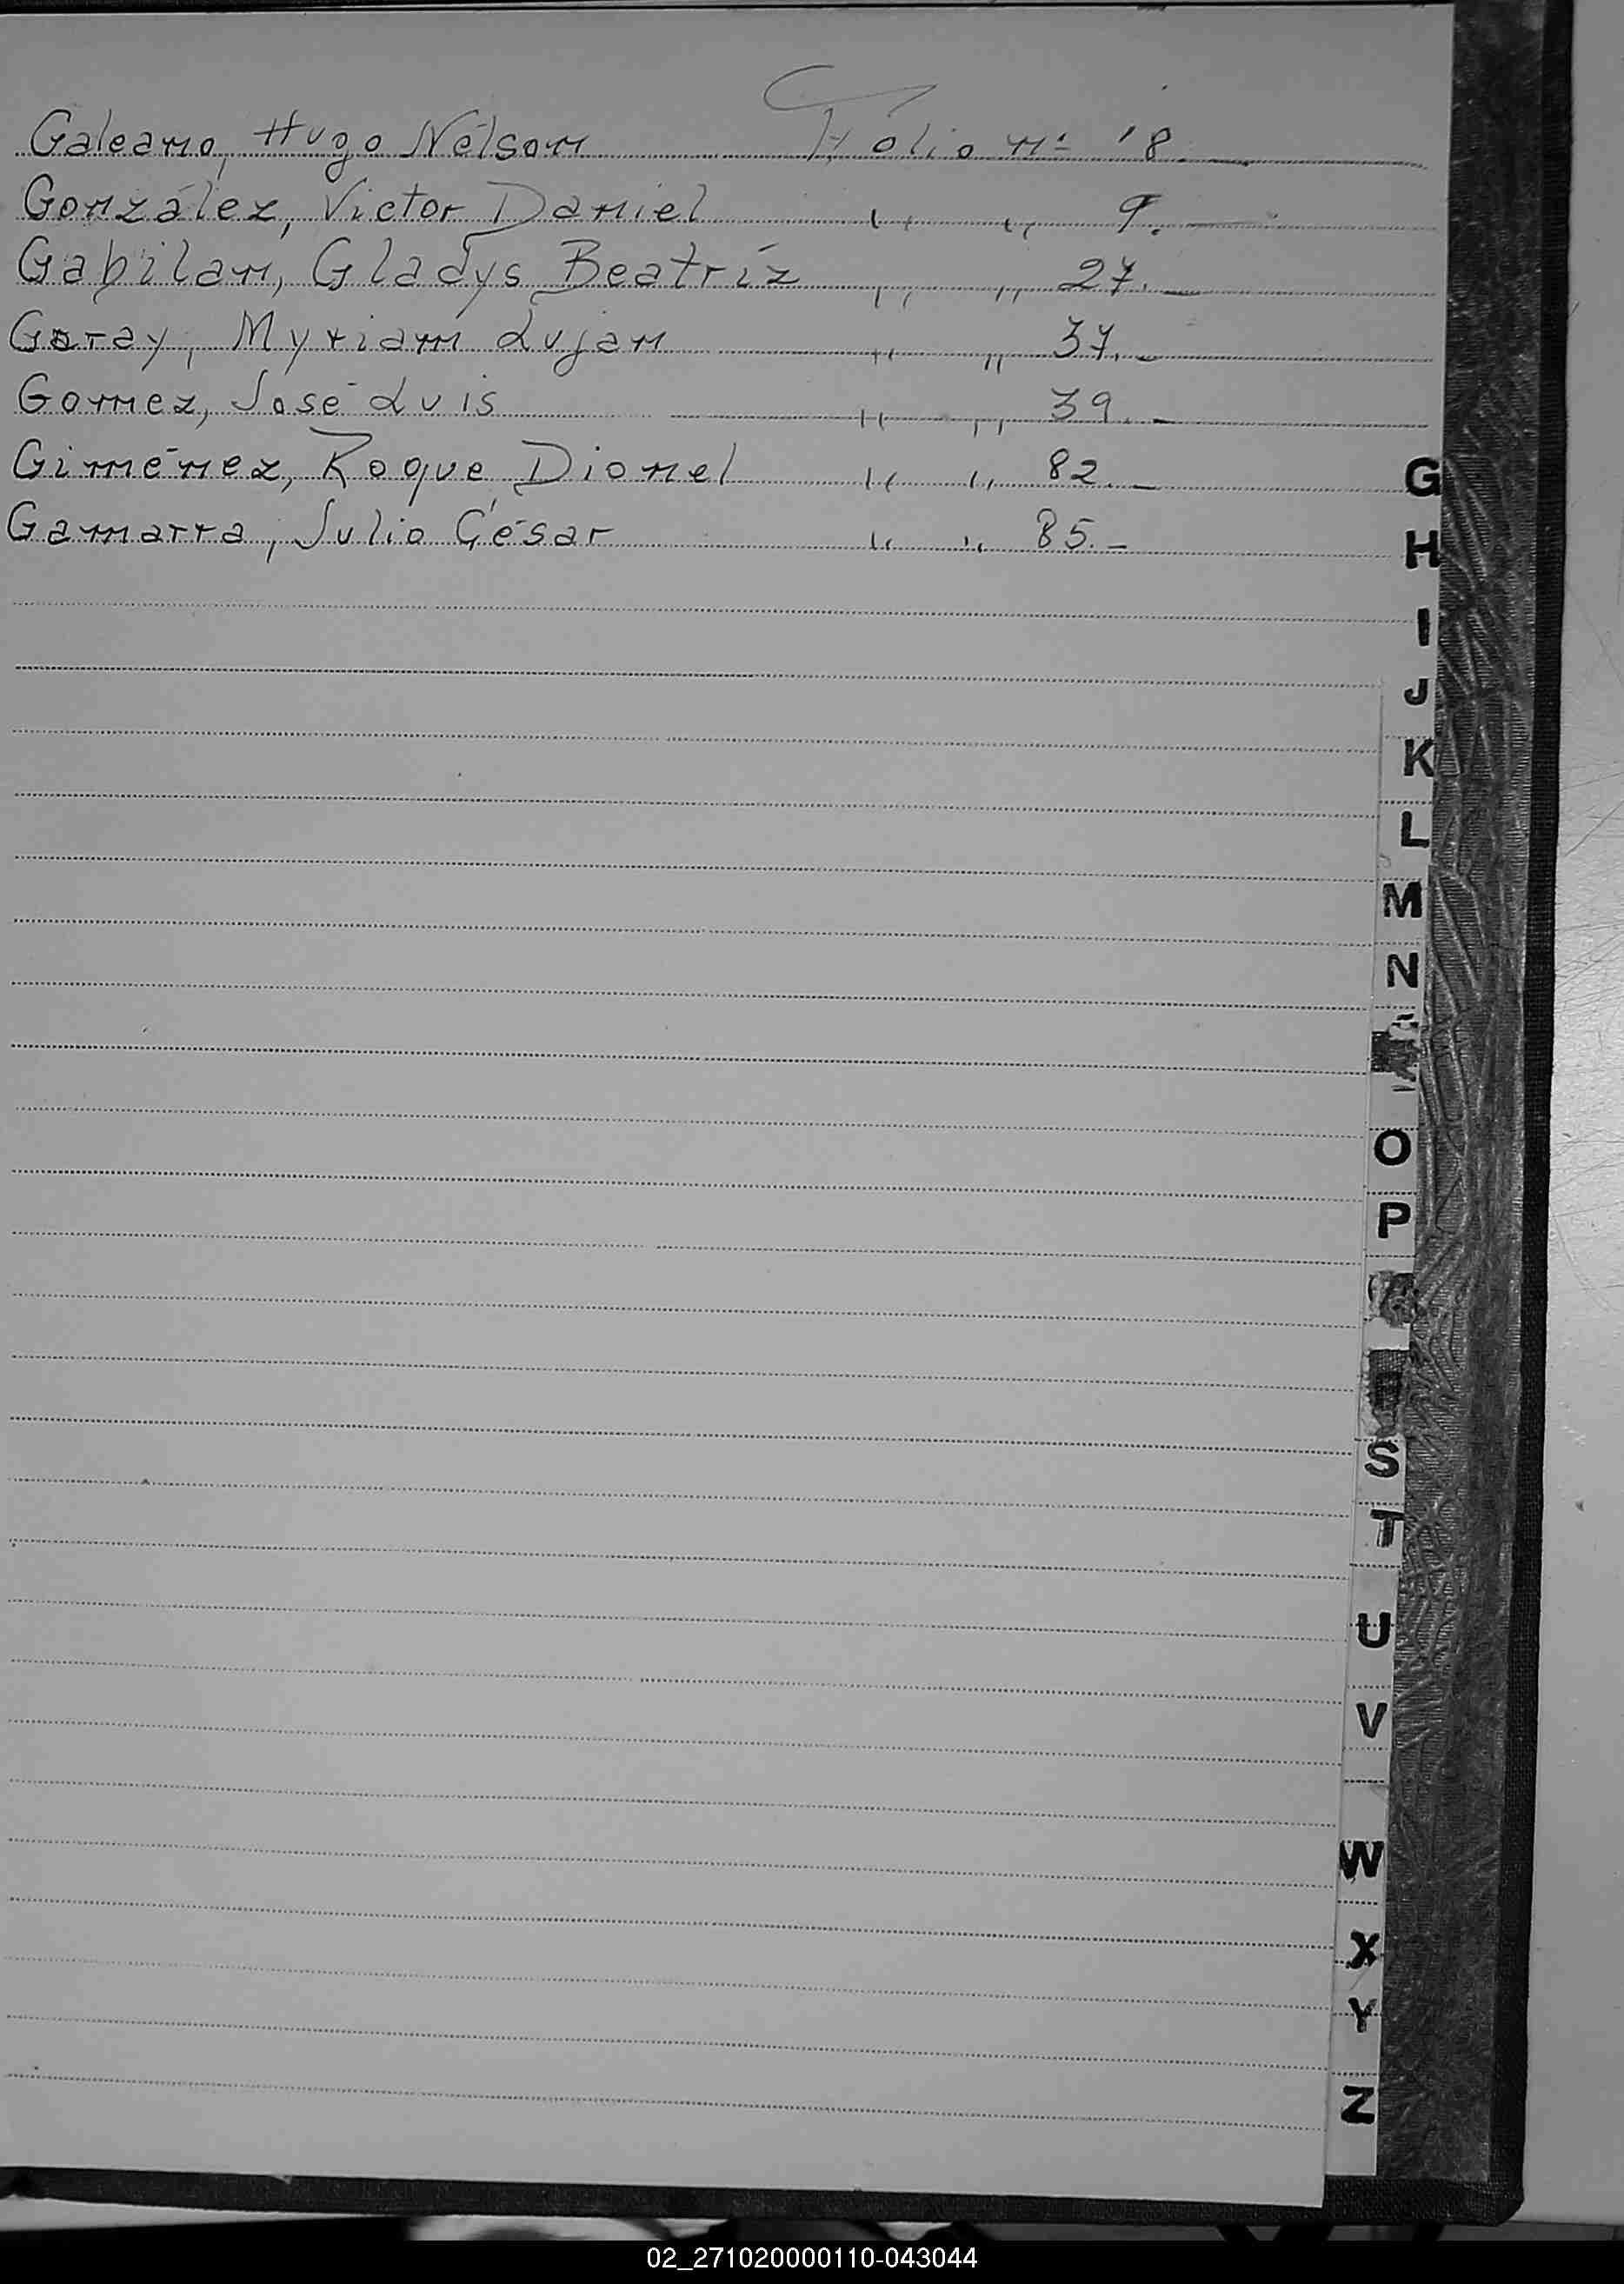 Galeano, Hugo Nélson Fólio nº 8.
González, Victor Daniel ,, ,, 9.
Gabilan, Gladys Beatríz ,, ,, 27.
Garay, Myriam Lujan ,, ,, 37.
Gomez, José Luis ,, ,, 39.
Giménez, Roque Dionel ,, ,, 82.
Gamarra, Julio César ,, ,, 85.
G
H
I
J
K
L
M
N
O
P
S
T
U
V
W
X
Y
Z
02_271020000110-043044